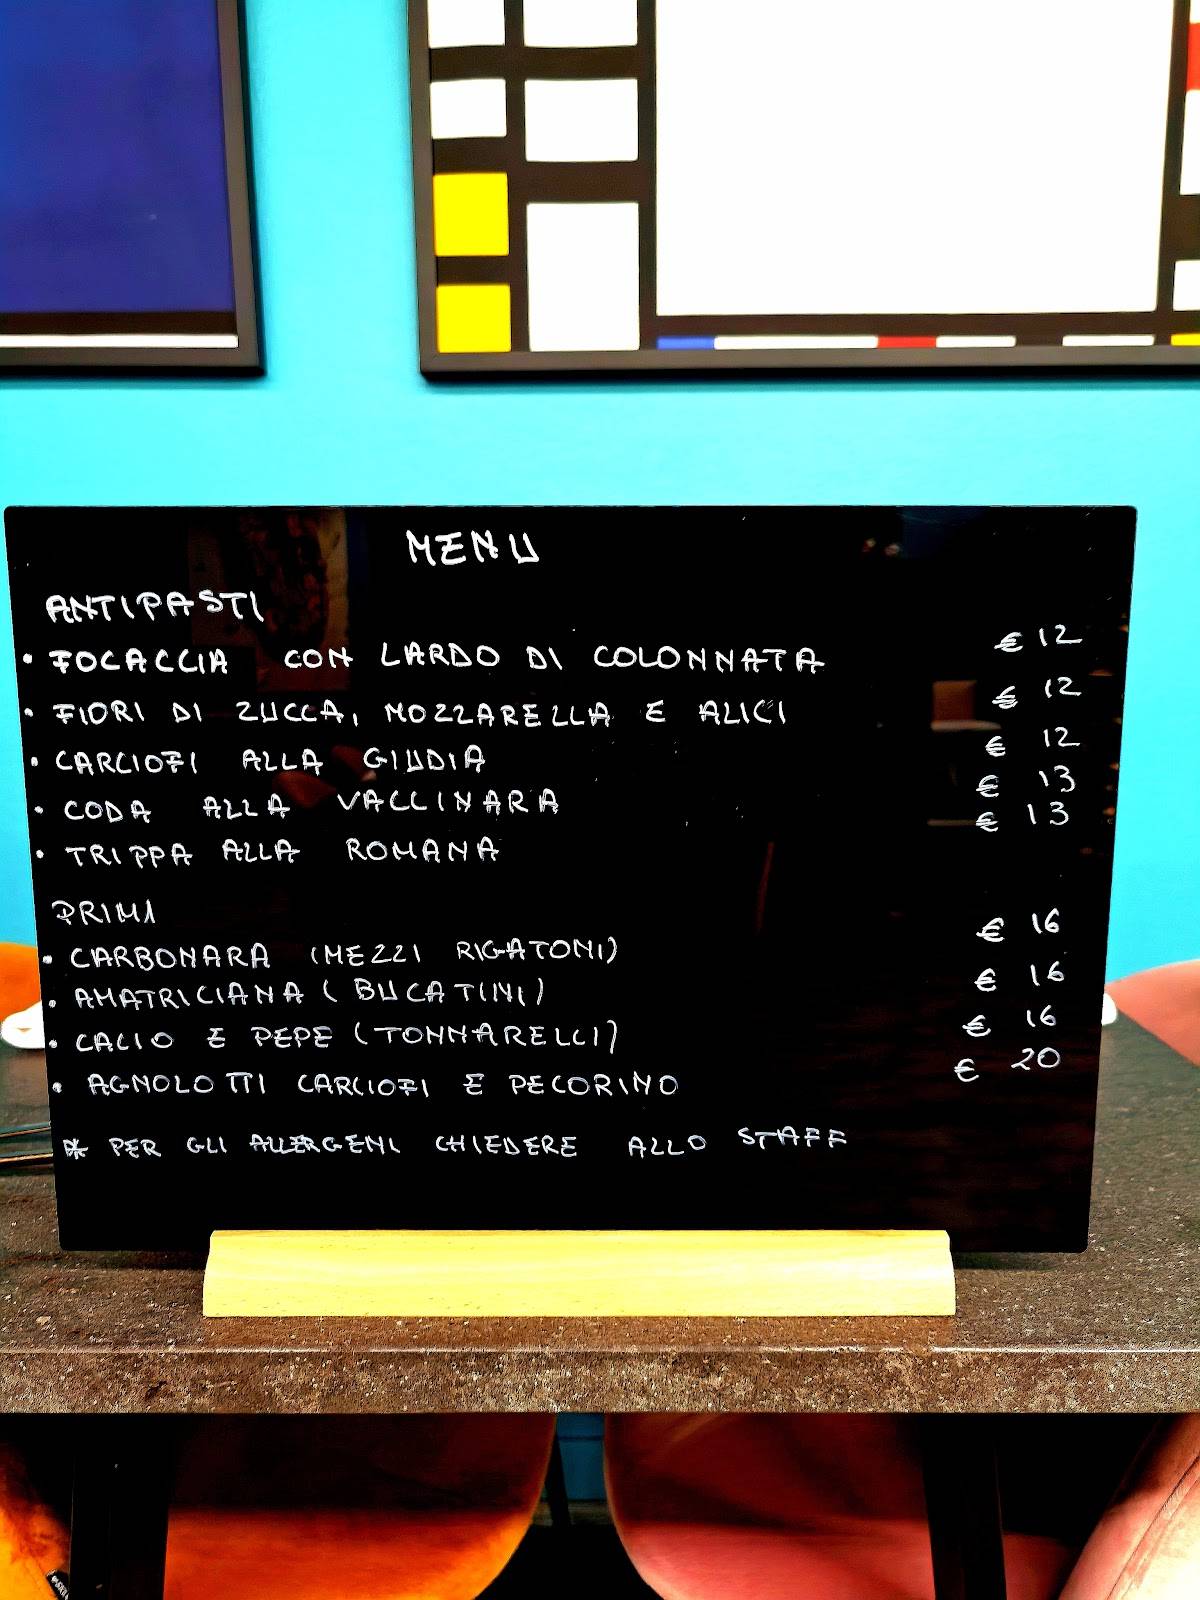 MENU
ANTIPASTI
• FOCACCIA CON LARDO DI COLONNATA € 12
• FIORI DI ZUCCA, MOZZARELLA E ALICI € 12
• CARCIOFI ALLA GIUDIA € 12
• CODA ALLA VACCINARA € 13
• TRIPPA ALLA ROMANA € 13
PRIMI
• CARBONARA (MEZZI RIGATONI) € 16
• AMATRICIANA (BUCATINI) € 16
• CACIO E PEPE (TONNARELLI) € 16
• AGNOLOTTI CARCIOFI E PECORINO € 20
* PER GLI ALLERGENI CHIEDERE ALLO STAFF